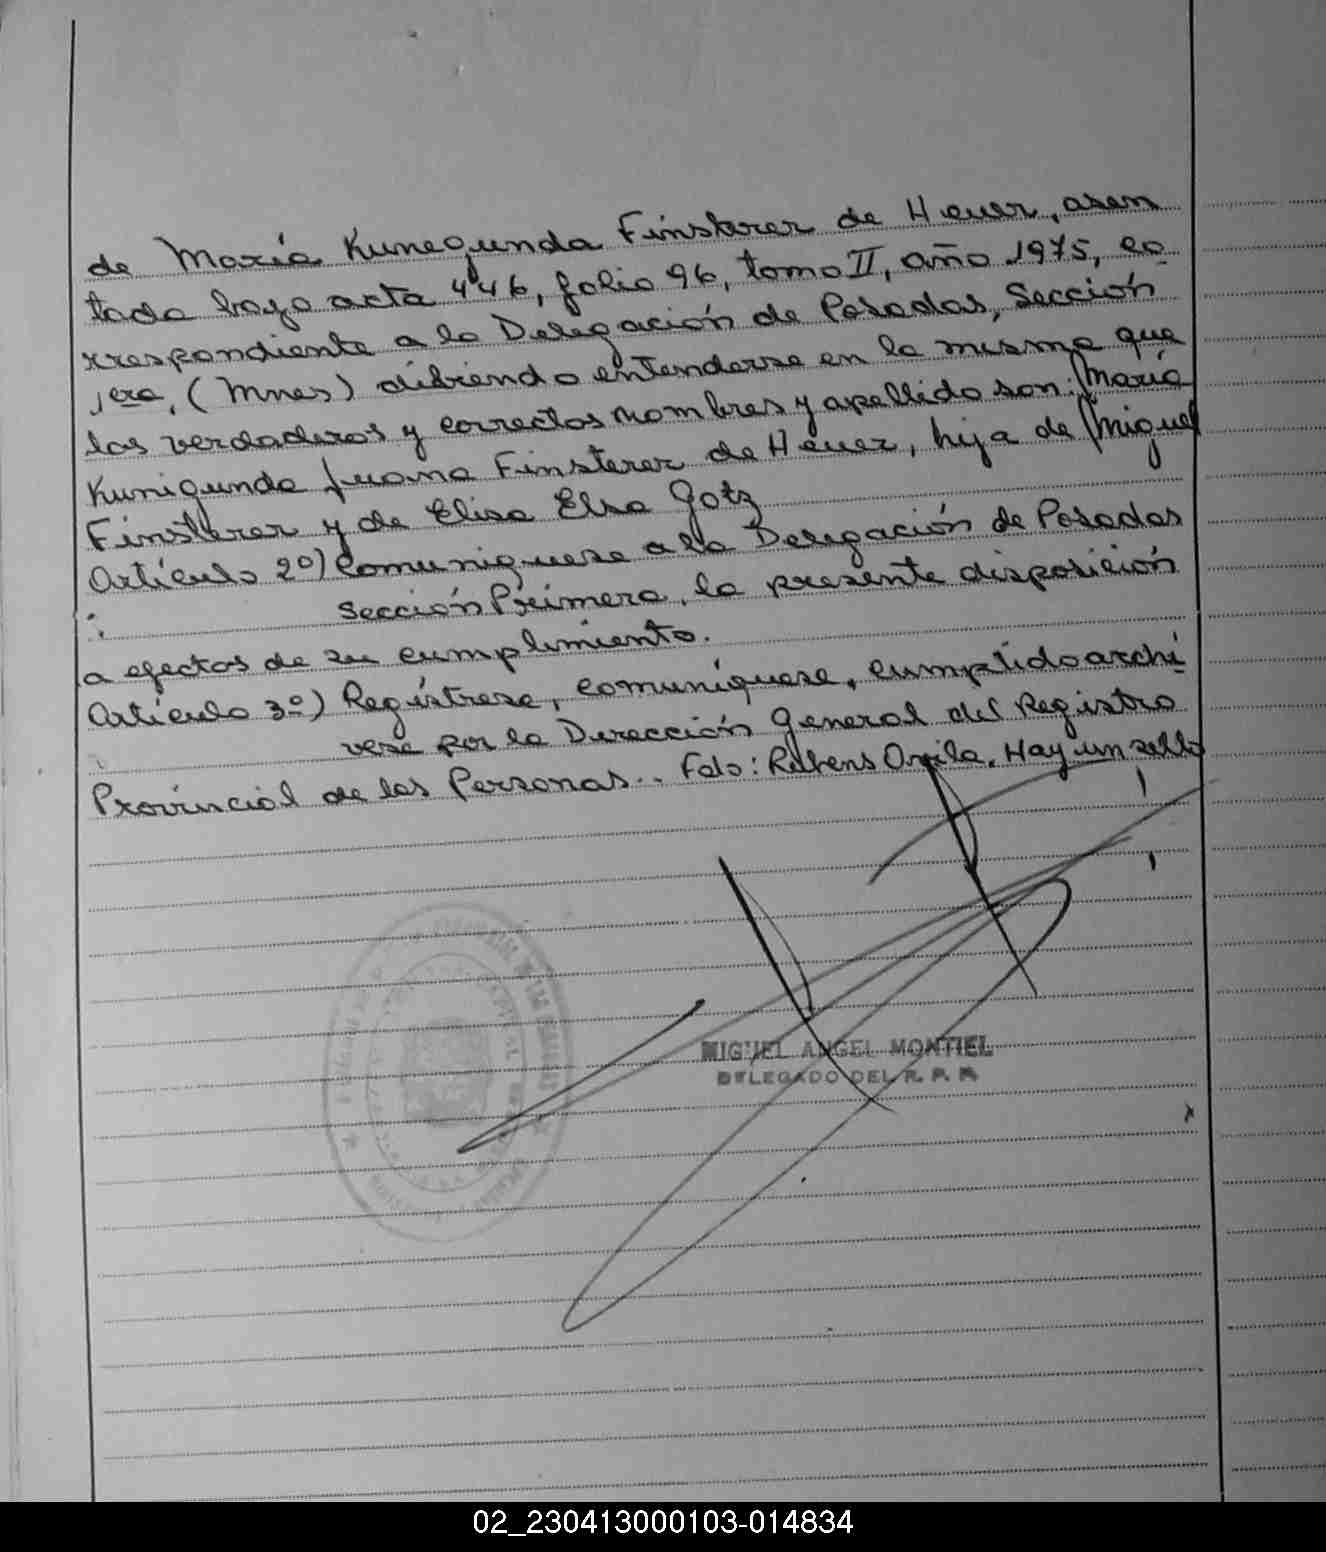 de María Kunegunda Finsterer de Heuer, asen
tada bajo acta 446, folio 96, tomo II, año 1975, co
rrespondiente a la Delegación de Posadas, Sección
1era, (Mnes) debiendo entenderse en la misma que
los verdaderos y correctos nombres y apellido son: María
Kunigunda Juana Finsterer de Heuer, hija de Miguel
Finsterer y de Elisa Elsa Gotz
Artículo 2º) Comuniquese a la Delegación de Posadas
Sección Primera, la presente disposición
a efectos de su cumplimiento.
Artículo 3º) Regístrese, comuníquese, cumplido archi
vese por la Dirección General del Registro
Provincial de las Personas.. Fdo: Rubens Orvila. Hay un sello
MIGUEL ANGEL MONTIEL
DELEGADO DEL R. P. P.
02_230413000103-014834